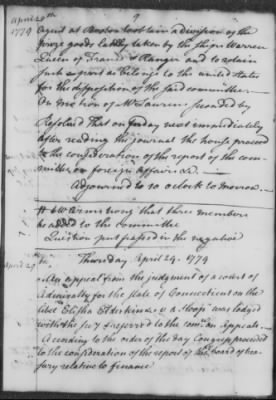 April 20th 9
1779 Agent at Boston to obtain a division of the
prize goods lately taken by the ships Warren
Queen of France & Ranger and to retain
such a part as belongs to the united States
for the disposition of the said committee
On motion of Mr Laurens seconded by
Resolved That on friday next immediately
after reading the journal the house proceed
to the consideration of the report of the com-
mittee on foreign affairs
Adjourned to 10 oClock to morrow
that three members
be added to the Committee
Question put passed in the negative
Thursday April 24. 1779
An appeal from the judgment of a court of
Admiralty for the state of Connecticut on the
libel Elisha Elderkin &c v a sloop was lodged
with the secy & referred to the comee on Appeals
According to the order of the day Congress proceeded
to the consideration of the report of the board of trea-
sury relative to finance